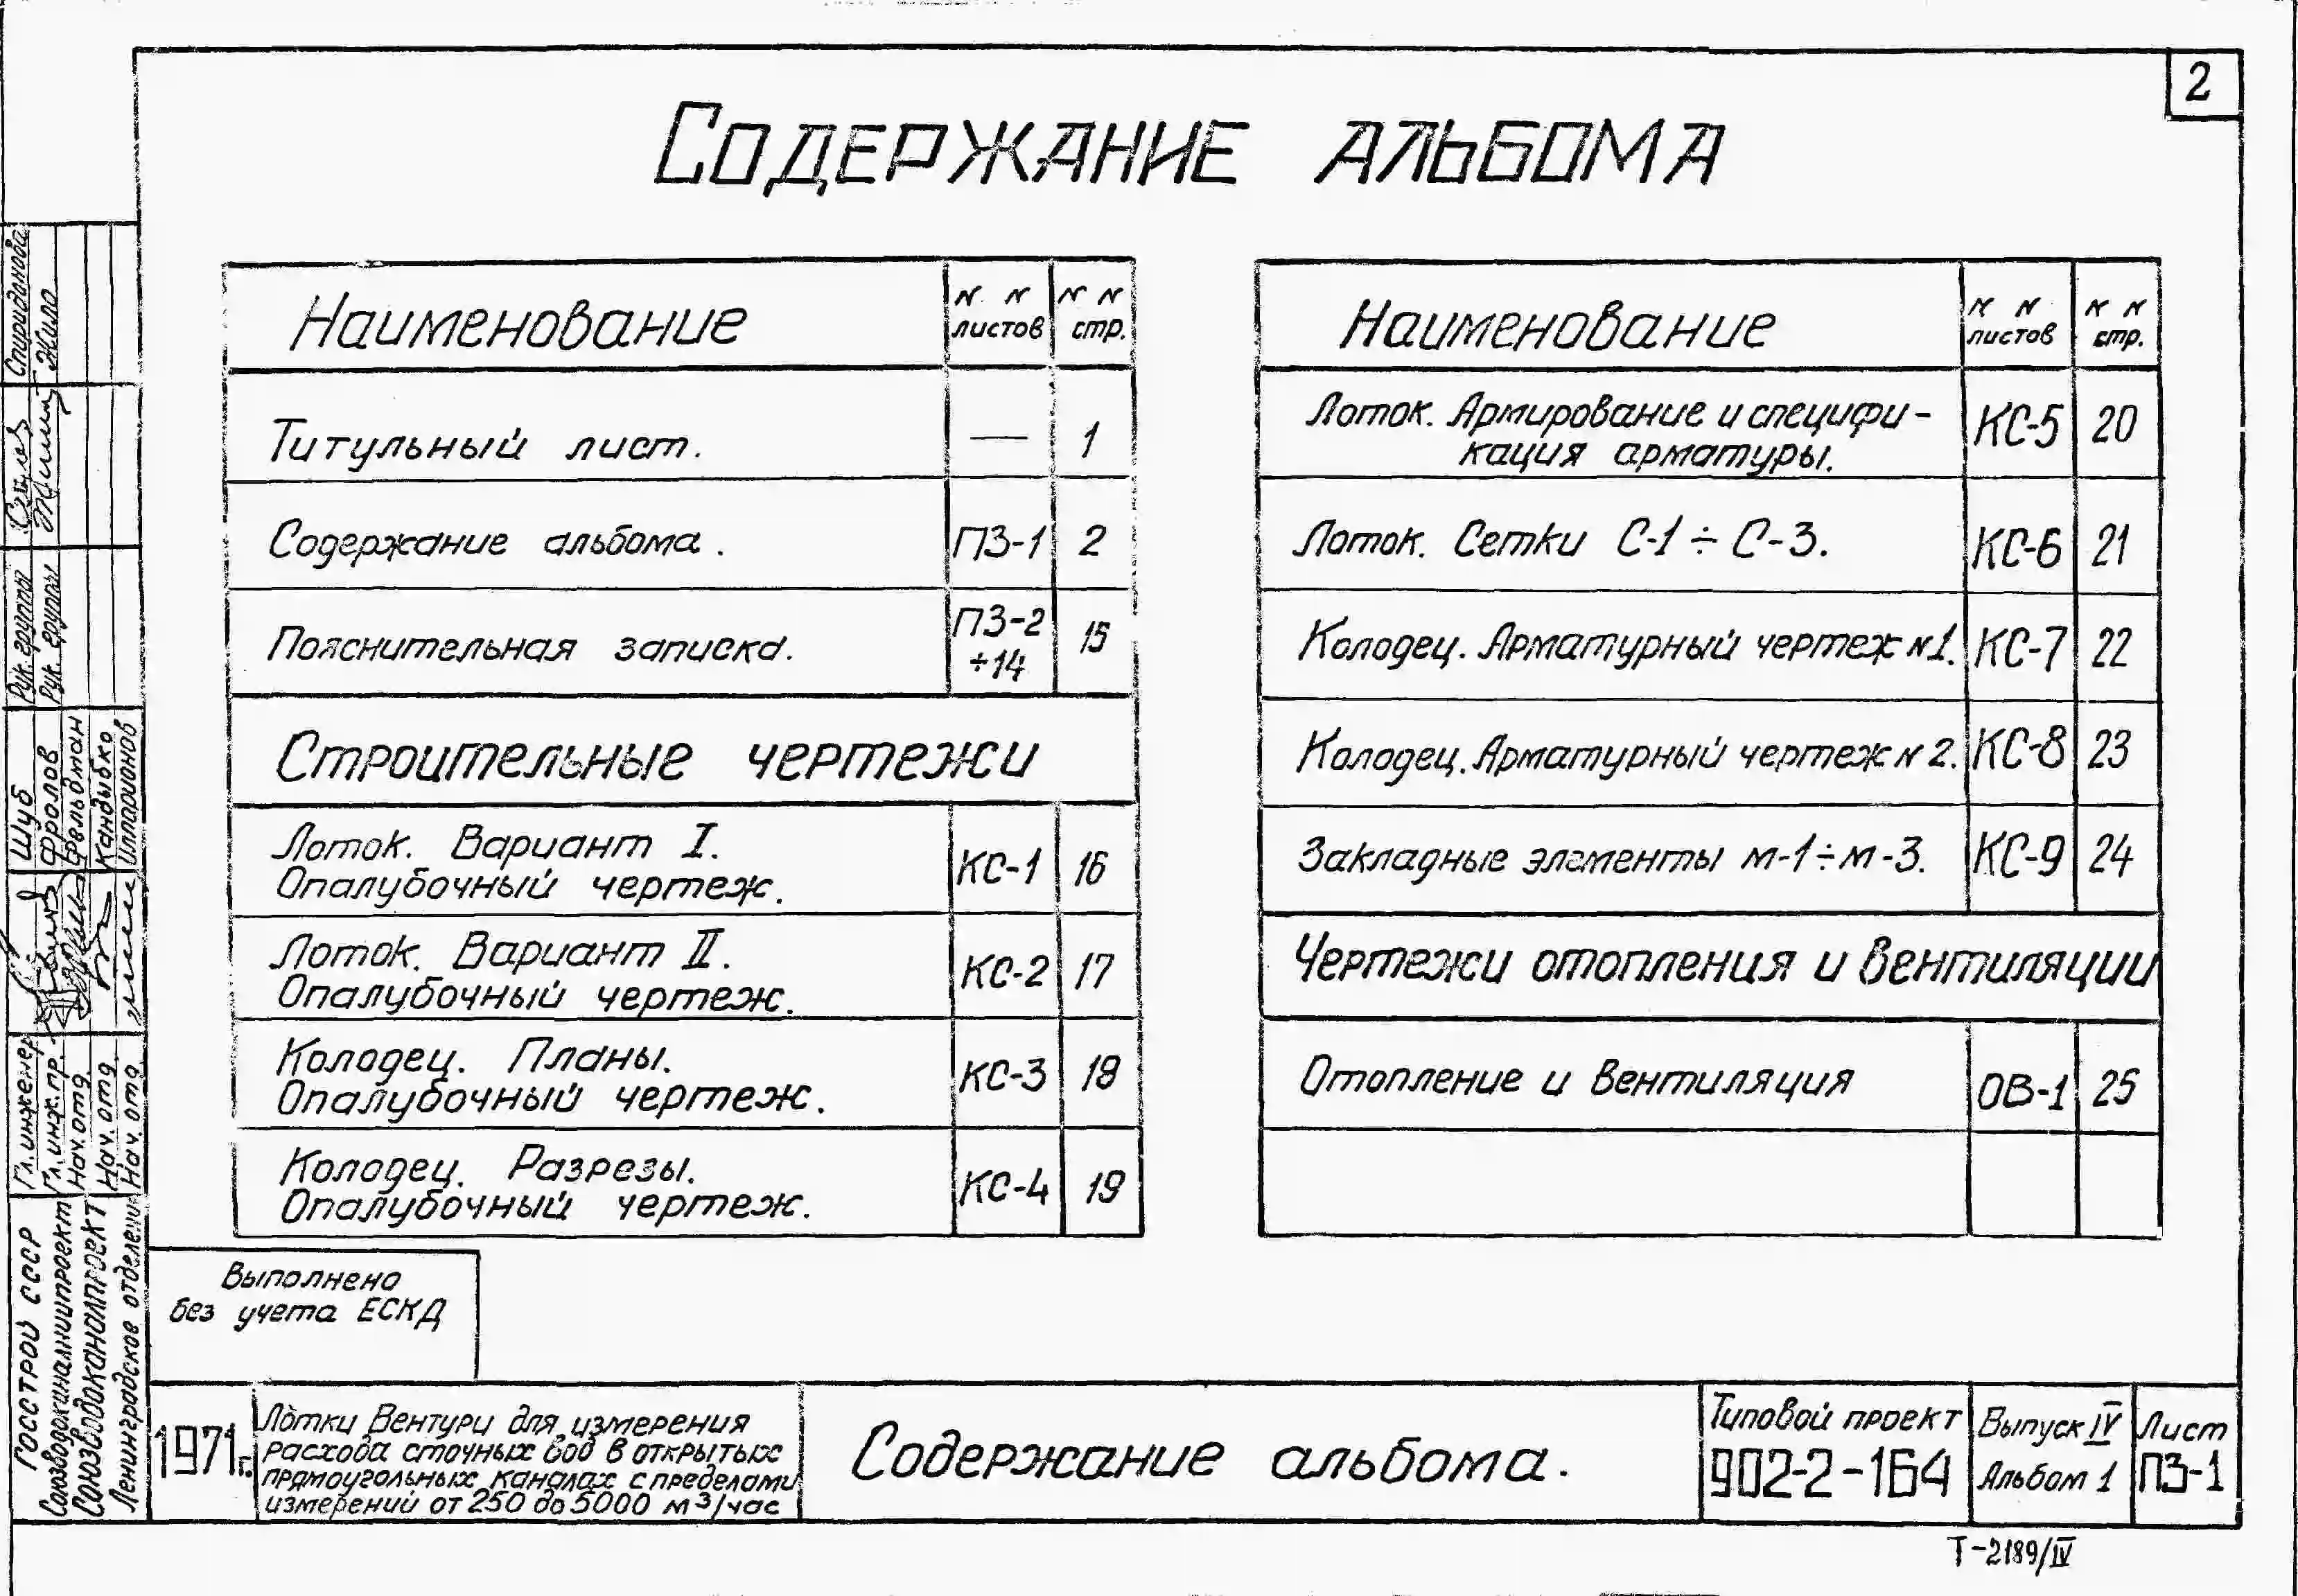 2
Содержание альбома
Наименование
N N листов
N N стр.
Титульный лист. — 1
Содержание альбома. ПЗ-1 2
Пояснительная записка. ПЗ-2 ÷14 15
Строительные чертежи
Лоток. Вариант I.
Опалубочный чертеж. КС-1 16
Лоток. Вариант II.
Опалубочный чертеж. КС-2 17
Колодец. Планы.
Опалубочный чертеж. КС-3 18
Колодец. Разрезы.
Опалубочный чертеж. КС-4 19
Наименование
N N листов
N N стр.
Лоток. Армирование и специфи-
кация арматуры. КС-5 20
Лоток. Сетки С-1 ÷ С-3. КС-6 21
Колодец. Арматурный чертеж N1. КС-7 22
Колодец. Арматурный чертеж N 2. КС-8 23
Закладные элементы м-1÷м-3. КС-9 24
Чертежи отопления и вентиляции
Отопление и вентиляция ОВ-1 25
Выполнено
без учета ЕСКД
1971г.
Лотки Вентури для измерения
расхода сточных вод в открытых
прямоугольных каналах с пределами
измерений от 250 до 5000 м³/час
Содержание альбома.
Типовой проект
902-2-164
Выпуск IV
Альбом 1
Лист
ПЗ-1
Т-2189/IV
Госстрой СССР
Союзводоканалниипроект
Союзводоканалпроект
Ленинградское отделение
Гл. инженер Шуб
Гл. инж. пр. Фролов
Нач. отд. Фельдман
Нач. отд. Кандыбко
Нач. отд. Илларионов
Рук. группы Спиридонова
Рук. группы Жило